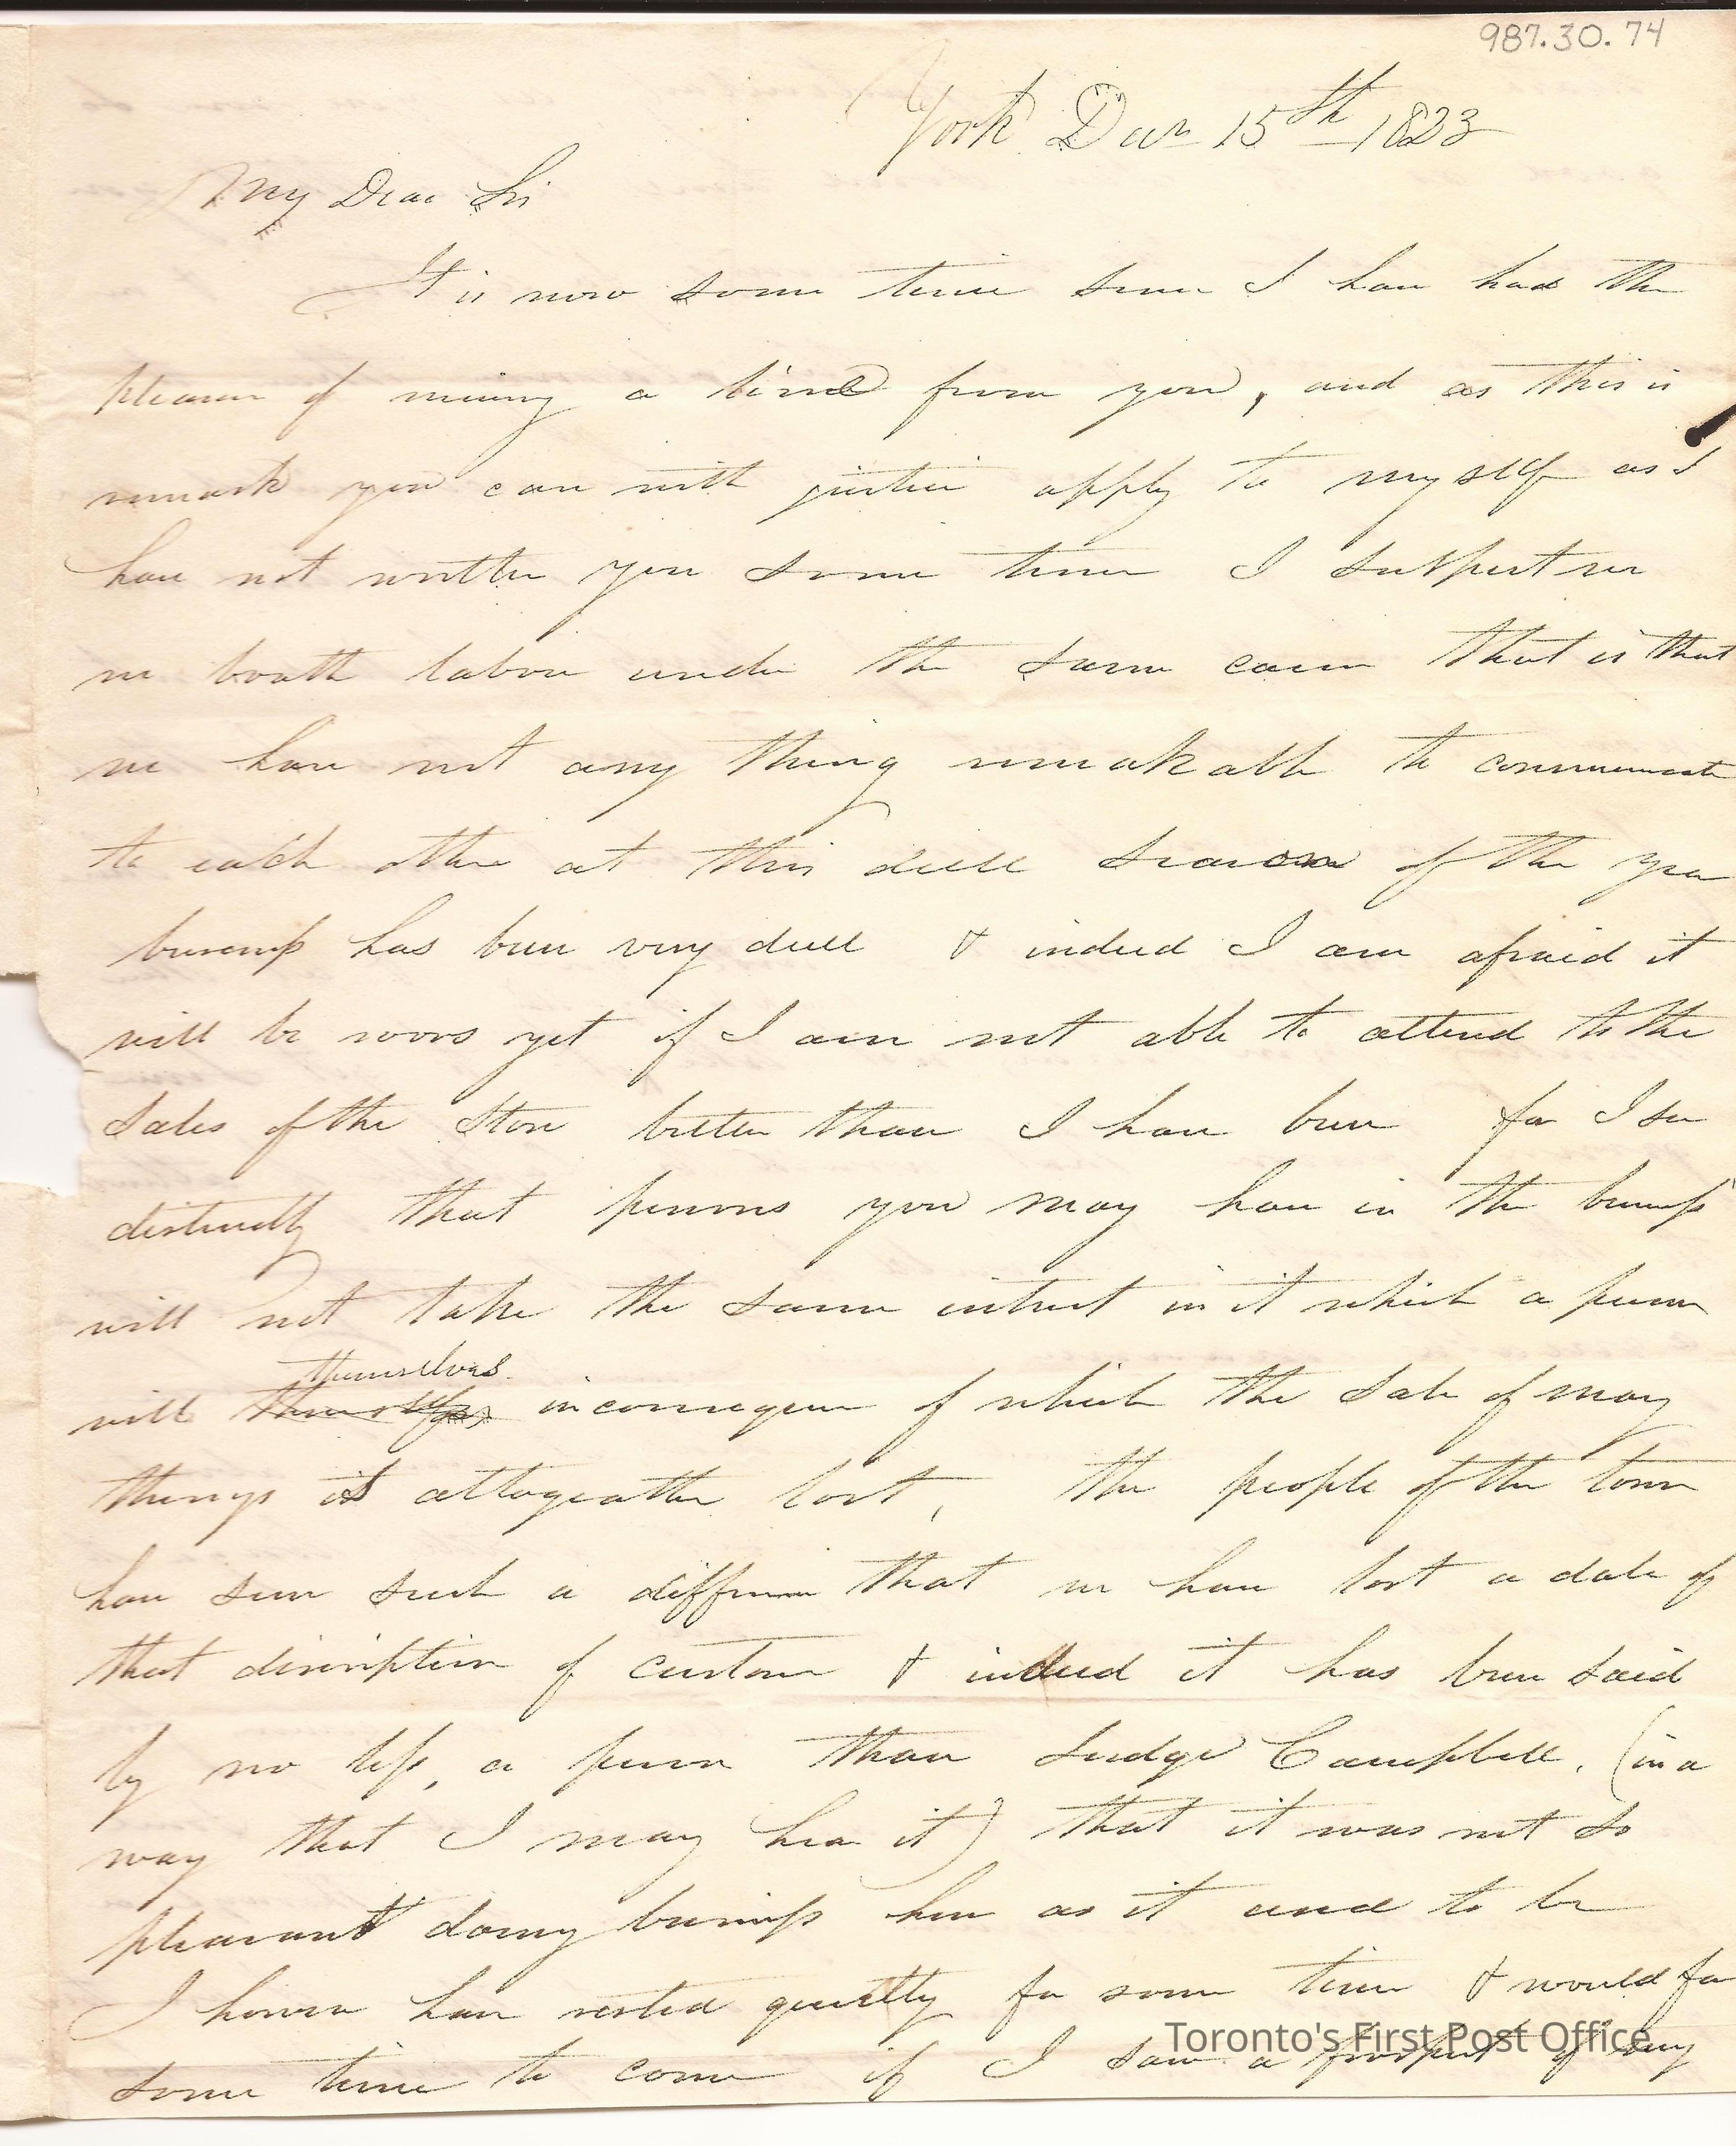 987.30.74
York Decr 15th 1823
My Dear Sir
It is now some time since I have had the
pleasure of receiving a line from you, and as this is
remark you can with justice apply to myself as I
have not written you some time I suspect
we boath labour under the same cause that is that
we have not any thing remarkable to communicate
to eatch other at this dull season of the year
business has been very dull & indeed I am afraid it
will be woors yet if I am not able to attend to the
sales of the Store better than I have been for I see
distinctly that persons you may have in the business
will not take the same intrest in it which a person
will themselves in consequence of which the sale of many
things is altogeather lost, the people of the town
have seen such a difference that we have lost a deale of
that discription of custom & indeed it has been said
by no less, a person than Judge Campbell, (in a
way that I may hear it) that it was not so
pleasant doing business here as it used to be
I however have rested quietly for some time & would for
some time to come if I saw a prospect of any
Toronto's First Post Office